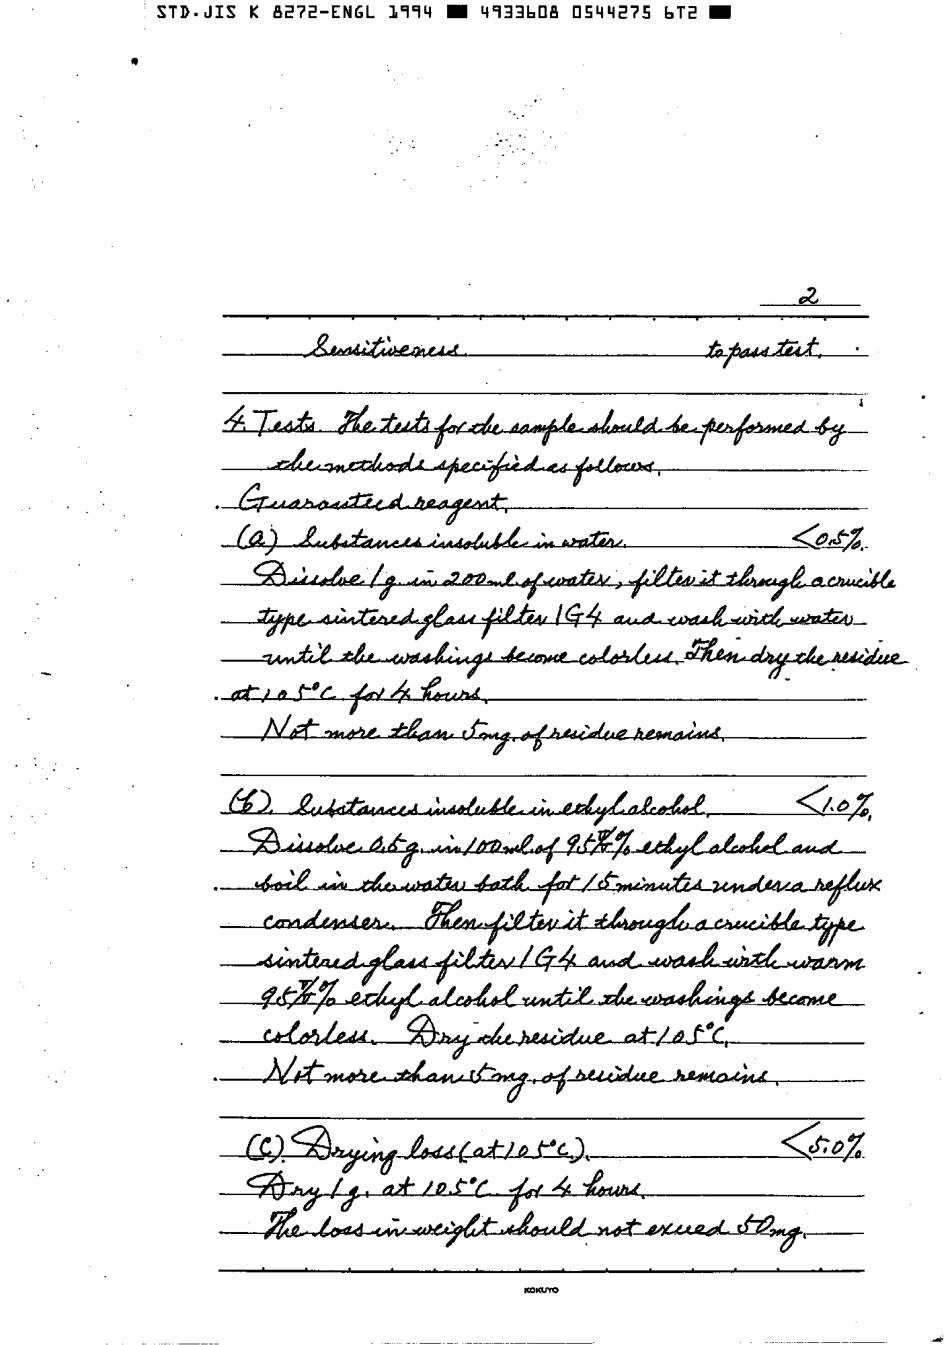 STD.JIS K 8272-ENGL 1994 ■ 4933608 0544275 6T2 ■
2
Sensitiveness to pass test.
4. Tests. The tests for the sample should be performed by
the methods specified as follows.
Guaranteed reagent.
(a) Substances insoluble in water. <0.5%.
Dissolve 1g. in 200ml of water, filter it through a crucible
type sintered glass filter 1G4 and wash with water
until the washings become colorless. Then dry the residue
at 105°C for 4 hours.
Not more than 5mg. of residue remains.
(b). Substances insoluble in ethyl alcohol. <1.0%.
Dissolve 0.5g. in 100ml of 95 V/V% ethyl alcohol and
boil in the water bath for 15 minutes under a reflux
condenser. Then filter it through a crucible type
sintered glass filter 1G4 and wash with warm
95 V/V% ethyl alcohol until the washings become
colorless. Dry the residue at 105°C.
Not more than 5mg. of residue remains.
(C). Drying loss (at 105°C.). <5.0%.
Dry 1g. at 105°C for 4 hours.
The loss in weight should not exceed 50mg.
KOKUYO